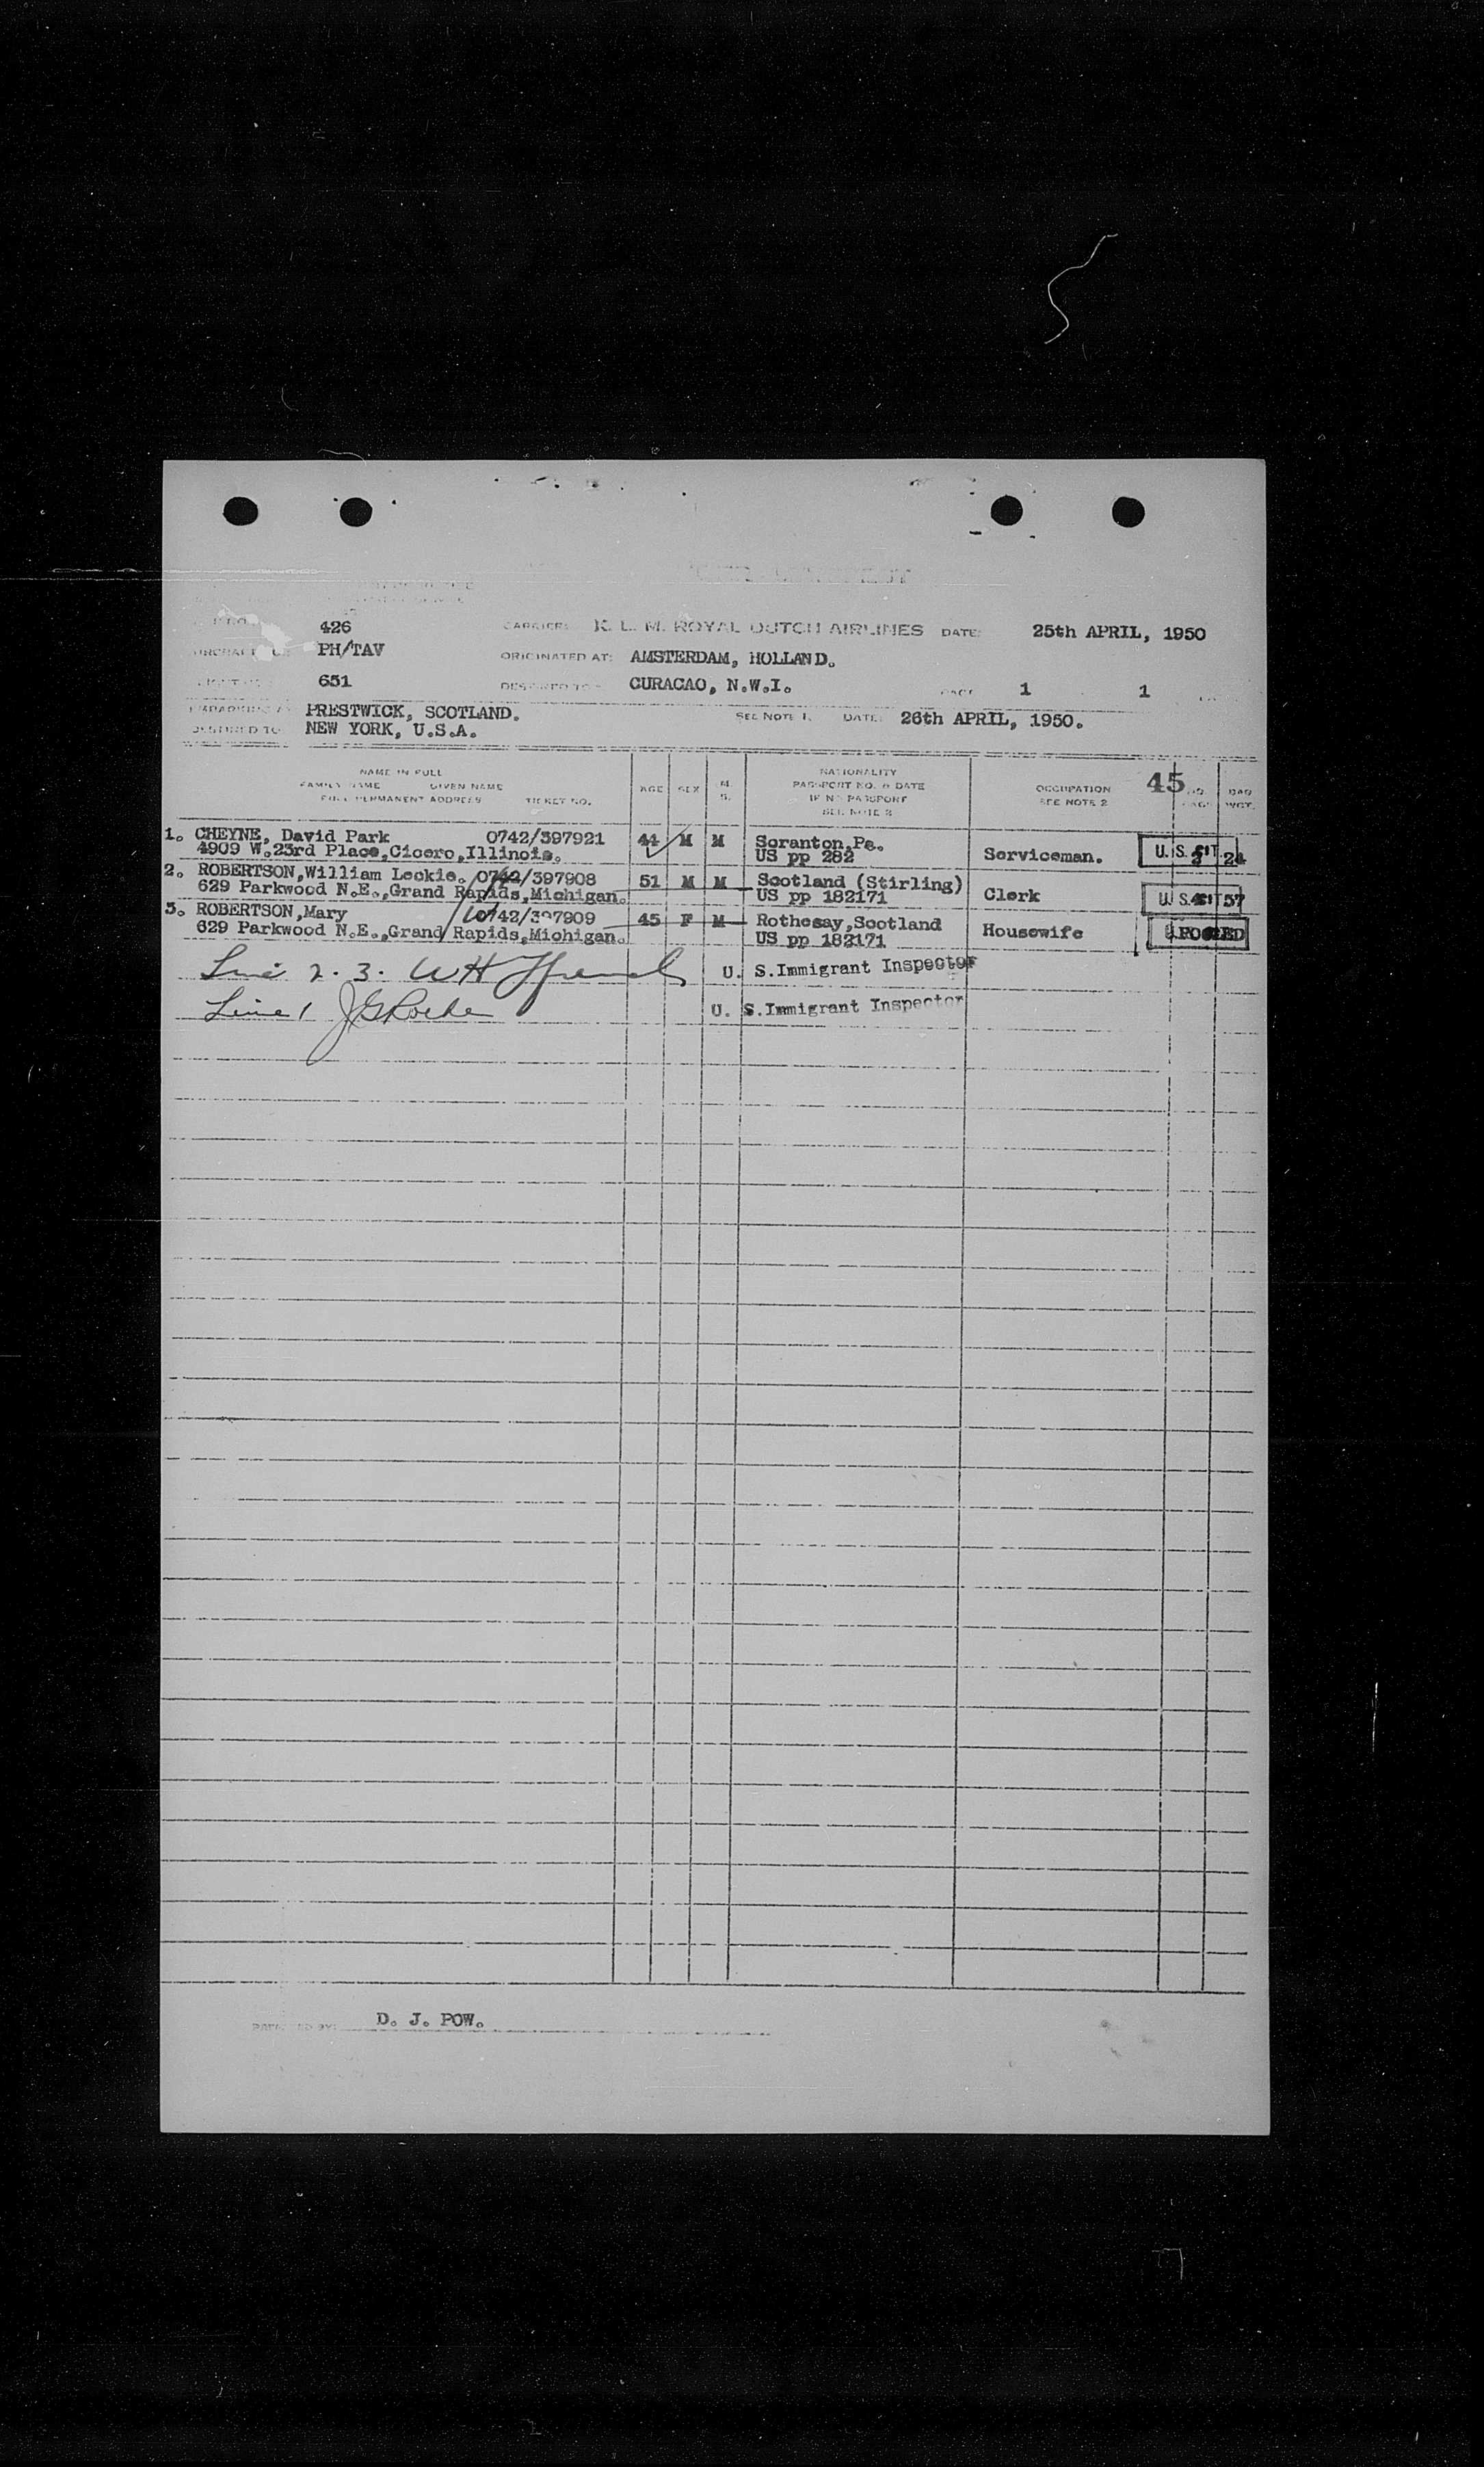 426 CARRIER: K. L. M. ROYAL DUTCH AIRLINES DATE: 25th APRIL, 1950
PH/TAV ORIGINATED AT: AMSTERDAM, HOLLAND.
651 DESTINED TO CURACAO, N.W.I. PAGE 1 1
EMBARKING AT PRESTWICK, SCOTLAND. SEE NOTE 1. DATE: 26th APRIL, 1950.
DESTINED TO NEW YORK, U.S.A.
NAME IN FULL
FAMILY NAME GIVEN NAME
FULL PERMANENT ADDRESS TICKET NO.
AGE
SEX
M.
S.
NATIONALITY
PASSPORT NO. & DATE
IF NO PASSPORT
SEE NOTE 2
OCCUPATION
SEE NOTE 2
45
BAG
WGT.
1. CHEYNE, David Park 0742/397921 44 M M Scranton,Pa.
4909 W.23rd Place,Cicero,Illinois. US pp 282 Serviceman. U. S.
2. ROBERTSON,William Leckie. 0742/397908 51 M M Scotland (Stirling)
629 Parkwood N.E.,Grand Rapids,Michigan. US pp 182171 Clerk U. S.
3. ROBERTSON,Mary 45 F M Rothesay,Scotland
629 Parkwood N.E.,Grand Rapids,Michigan. US pp 182171 Housewife
Line 2. 3. U. S.Immigrant Inspector
Line 1 U. S.Immigrant Inspector
D. J. POW.